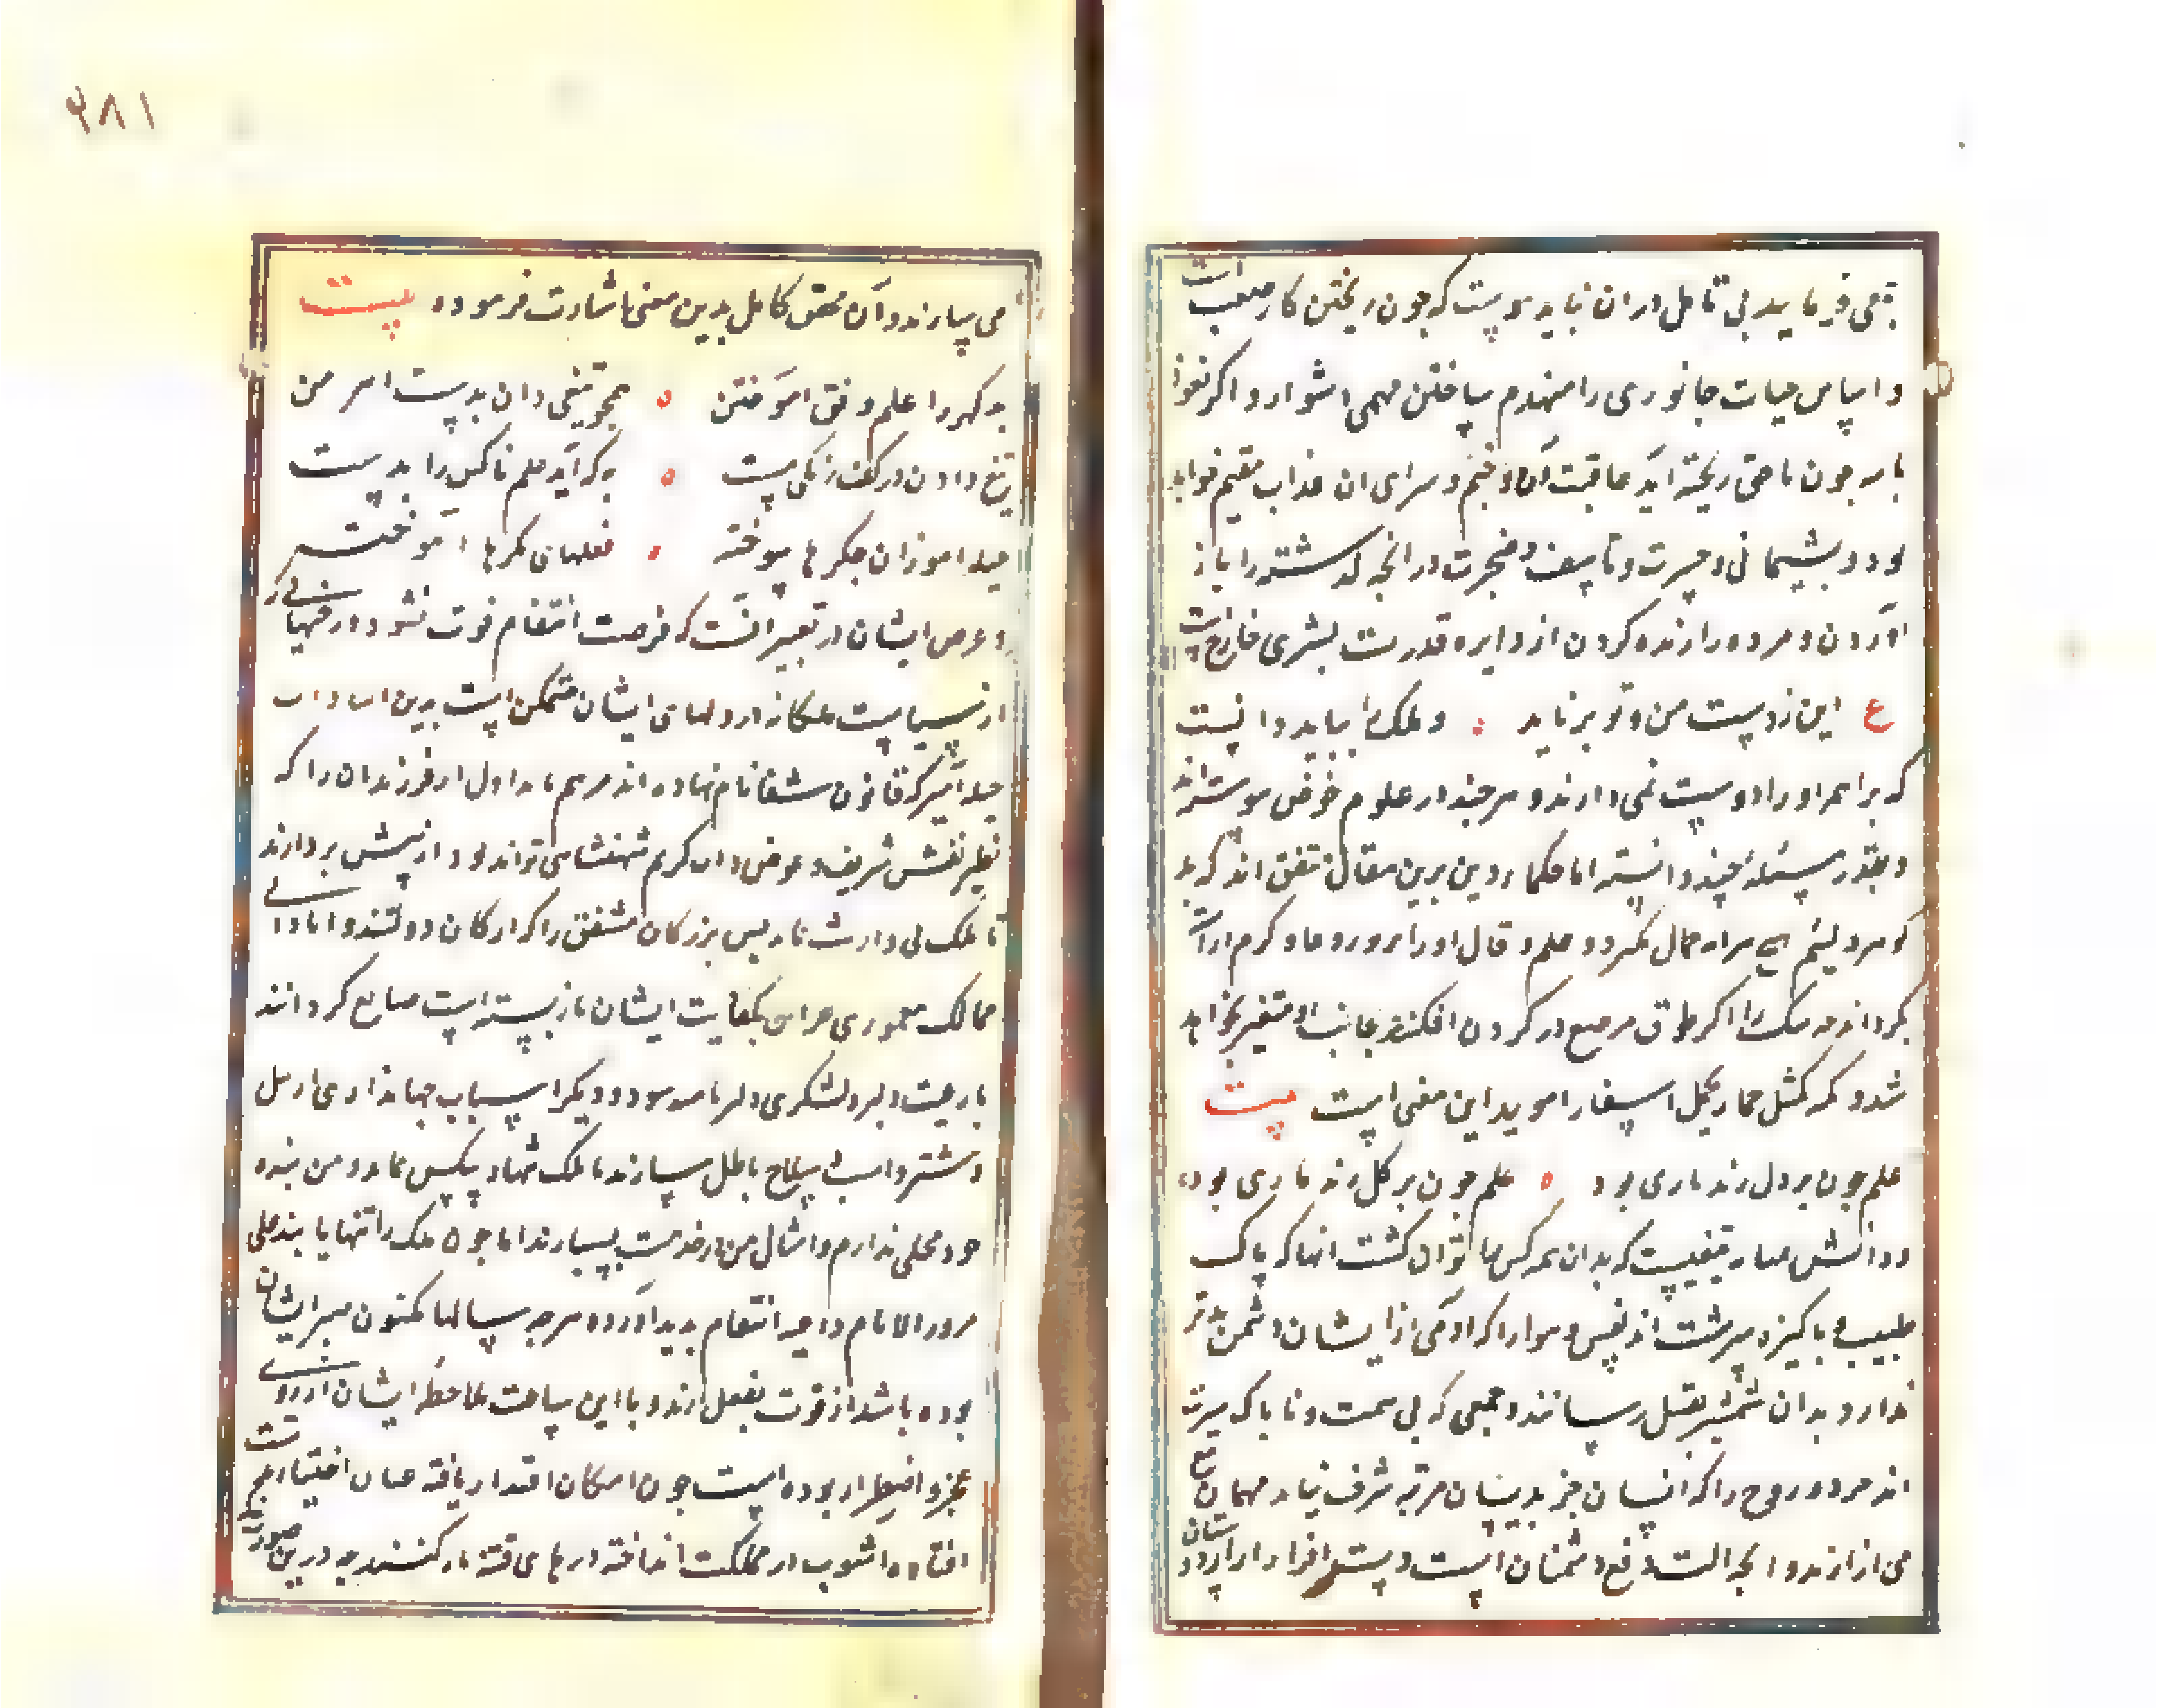 می فرمایید بی تامل در ان نباید پیوست که چون ریختن کار صعب است
و اساس حیات جانوری را منهدم ساختن مهمی دشوار و اکر نعوذ
بالله خون ناحق ریخته اید عاقبت آن وخیم و سزای ان عذاب مقیم خواهد
بود و پشیمانی و حسرت و تاسف و ضجرت در انچه کذشته را باز
آوردن و مرده را زنده کردن از دایره قدرت بشری خارج است
ع این ز دست من و تو بر ناید و ملک را بباید دانست
که براهمه او را دوست نمی دارند و هر چند در علوم خوض پیوسته اند
و بقدر مسئله چند دانسته اما حکماء دین برین مقال متفق اند که بد
کوهر و لئیم هیچ پیرایه جمال نکیرد و علم و قال او را بر وردها و کرم اراسته
نکرداند چه سک را اکر طوق مرصع در کردن افکنند خاست او متغیر نخواهد
شد و که کمثل حمار یحمل اسفارا موید این معنی است بیت
علم چون بر دل زند یاری بود علم چون بر کل زند ماری بود
و دانش بدان همه کس را توان کشت انها که پاک
طبیب و پاکیزه سرشت اند نفس و هوا را که ادمی را از ایشان دشمن تر
ندارد بدان شمشیر بقتل رسانند و جمعی که بی همت و ناپاک سیرت
اند خرد و روح را که انسان جز بدیشان مرتبه شرف نیابد بهمان تیغ
می ازارند و انچه الت دفع دشمنان است دستور ازار دوستان
می سازند و آن محقق کامل بدین معنی اشارت فرموده بیت
بد کهر را علم و فن اموختن همچو تیغی دان بدست اهرمن
تیغ دادن در کف زنکی مست به که آید علم ناکس را بدست
حیله اموزان جکرها سوخته فعلهای مکرها آموخته
و غرض ایشان در تعبیر انست که فرصت انتقام فوت نشود و رخنهائی که
از سیاست ملکانه در دلهای ایشان متمکن است بدین
حیله آمیز که قانون شفا نام نهاده اند مرهم یابد اول فرزندان را که
نظیر نفس شریف و عوض ذات کریم شهنشاهی توانند بود از پیش بردارند
تا ملک بی وارث ماند پس بزرکان مشفق را که ارکان دولتند و ابادانی
ممالک معموری خزاین بکفایت ایشان باز بسته است ضایع کردانند
تا رعیت دلیر و لشکری دلیر و دیکر اسباب جهانداری از پیل
و شتر و اسب و سلاح باطل سازند تا ملک تنها و بیکس بماند و من بنده
خود محلی ندارم و امثال من در خدمت بسیارند اما چون ملک را تنها یابند علی
مرور الایام داعیه انتقام پدید آورده هر چه سالها مکنون ضمیر ایشان
بوده باشد از قوت بفعل ارند و با این ساعت ملاحظه ایشان از روی
عجز و اضطرار بوده است چون امکان اقتدار یافته عنان اختیار بدست
افتاده اشوب در مملکت انداخته درهای فتنه باز کنند و درین صورت
۲۸۱